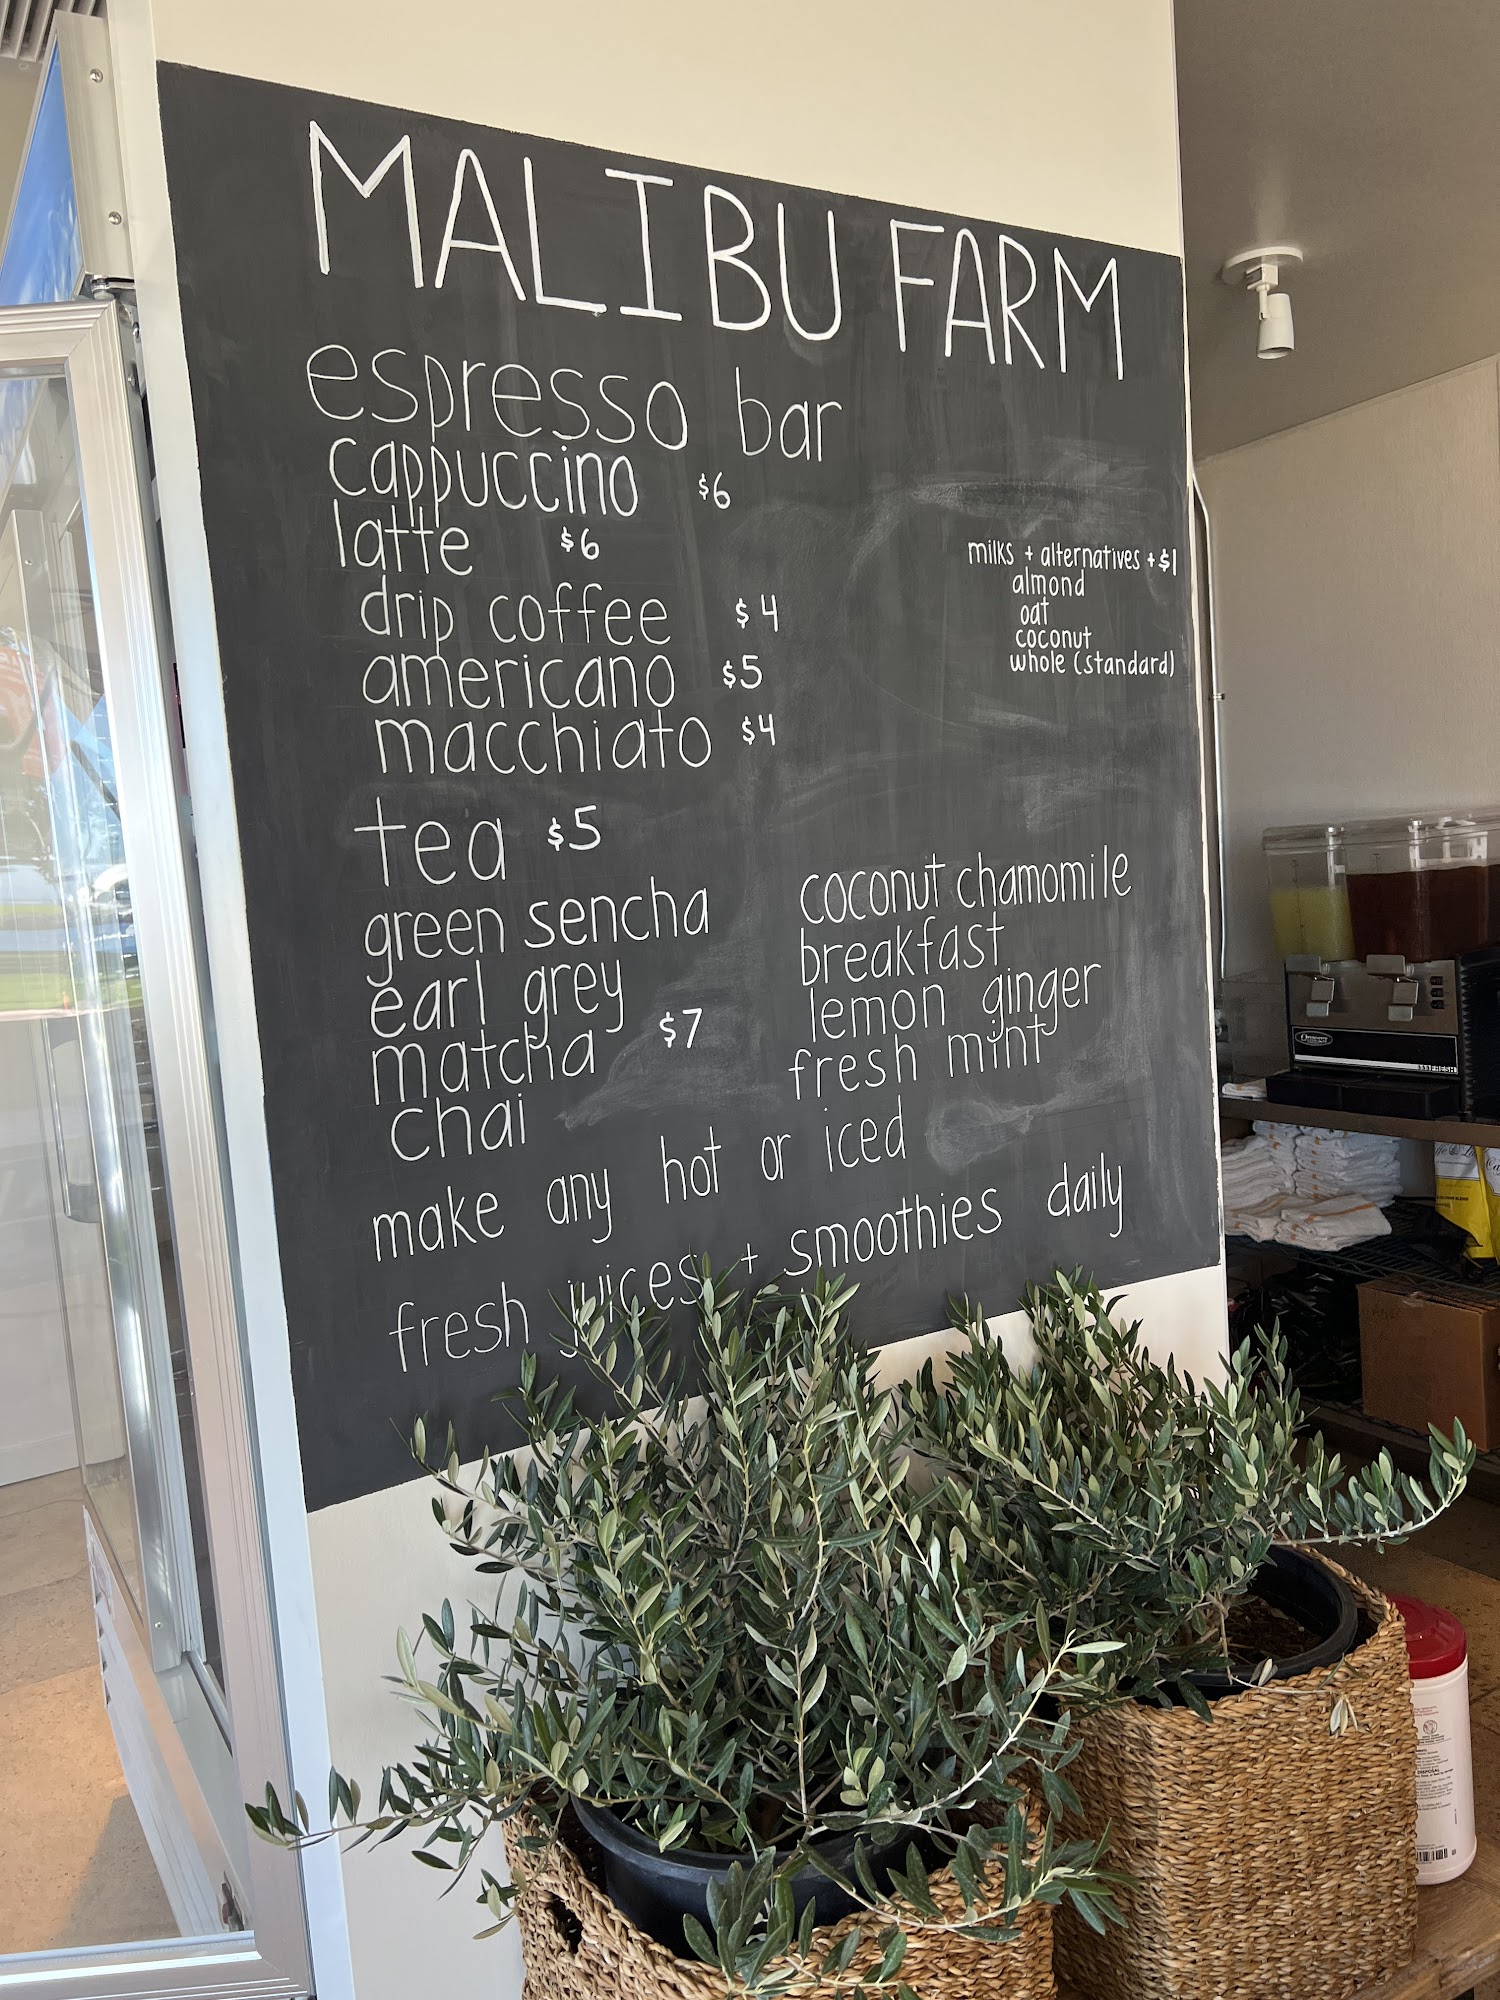 MALIBU FARM
espresso bar
cappuccino $6
latte $6
drip coffee $4
americano $5
macchiato $4
milks + alternatives +$1
almond
oat
coconut
whole (standard)
tea $5
green sencha
earl grey
matcha $7
chai
coconut chamomile
breakfast
lemon ginger
fresh mint
make any hot or iced
fresh juices + smoothies daily
DISPOSAL